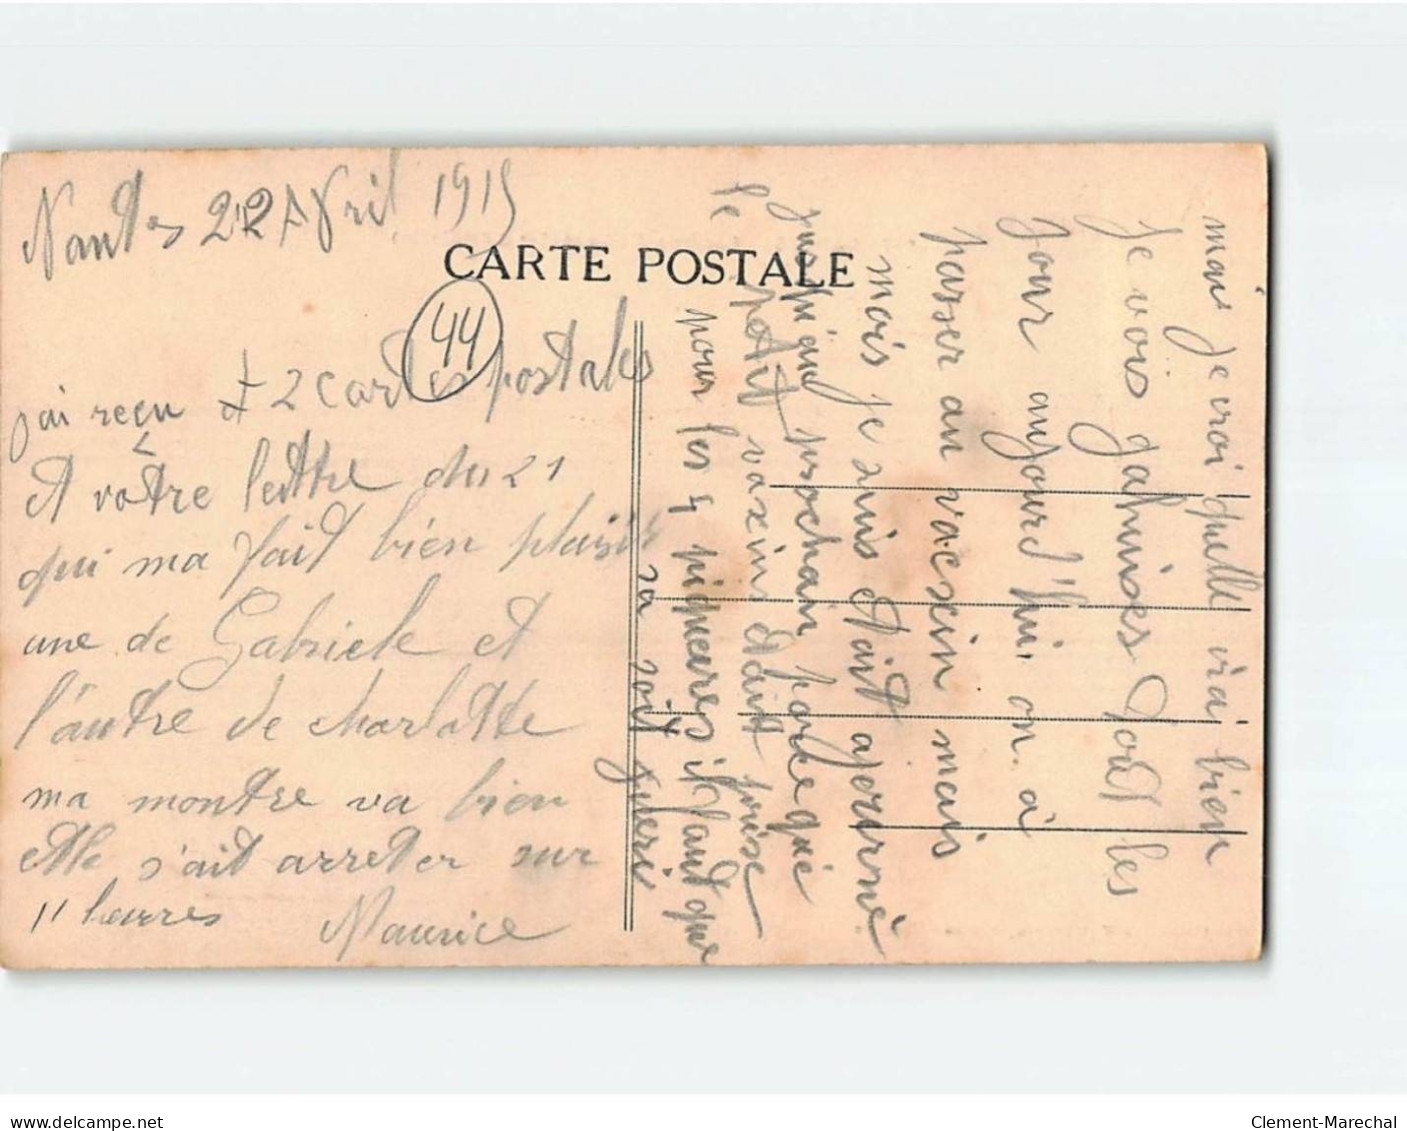 Nantes 22 Avril 1915
CARTE POSTALE
44
j'ai reçu 2 cartes postales
et vôtre lettre du 21
qui ma fait bien plaisir
une de Gabriele et
l'autre de charlotte
ma montre va bien
elle s'ait arreter sur
11 heures Maurice
mais je croi quelle vrai bien
Je vois galmises tout les
jour aujourd'hui on à
passer au vacsin mais
mois je suis était ajourné
jusqu'au prochain parceque
le petit vaxins était prise
pour les 4 piqueures il faut que
sa soit guéri
www.delcampe.net
Clement-Marechal